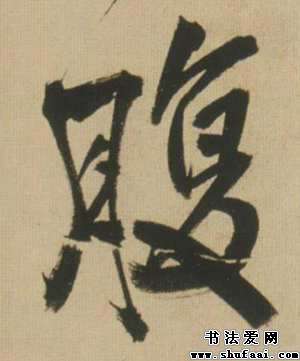 腹
书法爱网
www.shufaai.com